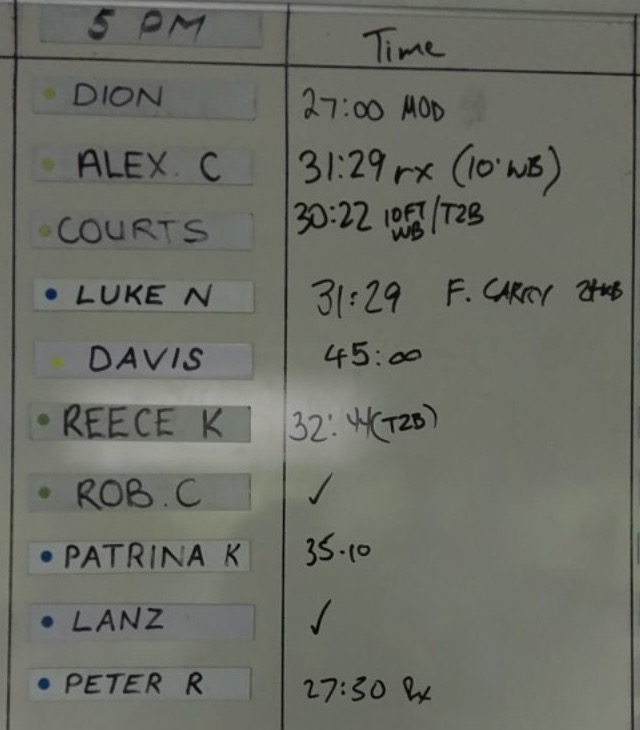 5 PM Time
DION 27:00 MOD
ALEX. C 31:29 rx (10' WB)
COURTS 30:22 10FT WB/T2B
LUKE N 31:29 F. CARRY
DAVIS 45:00
REECE K 32:44 (T2B)
ROB.C ✓
PATRINA K 35.10
LANZ ✓
PETER R 27:30 Rx